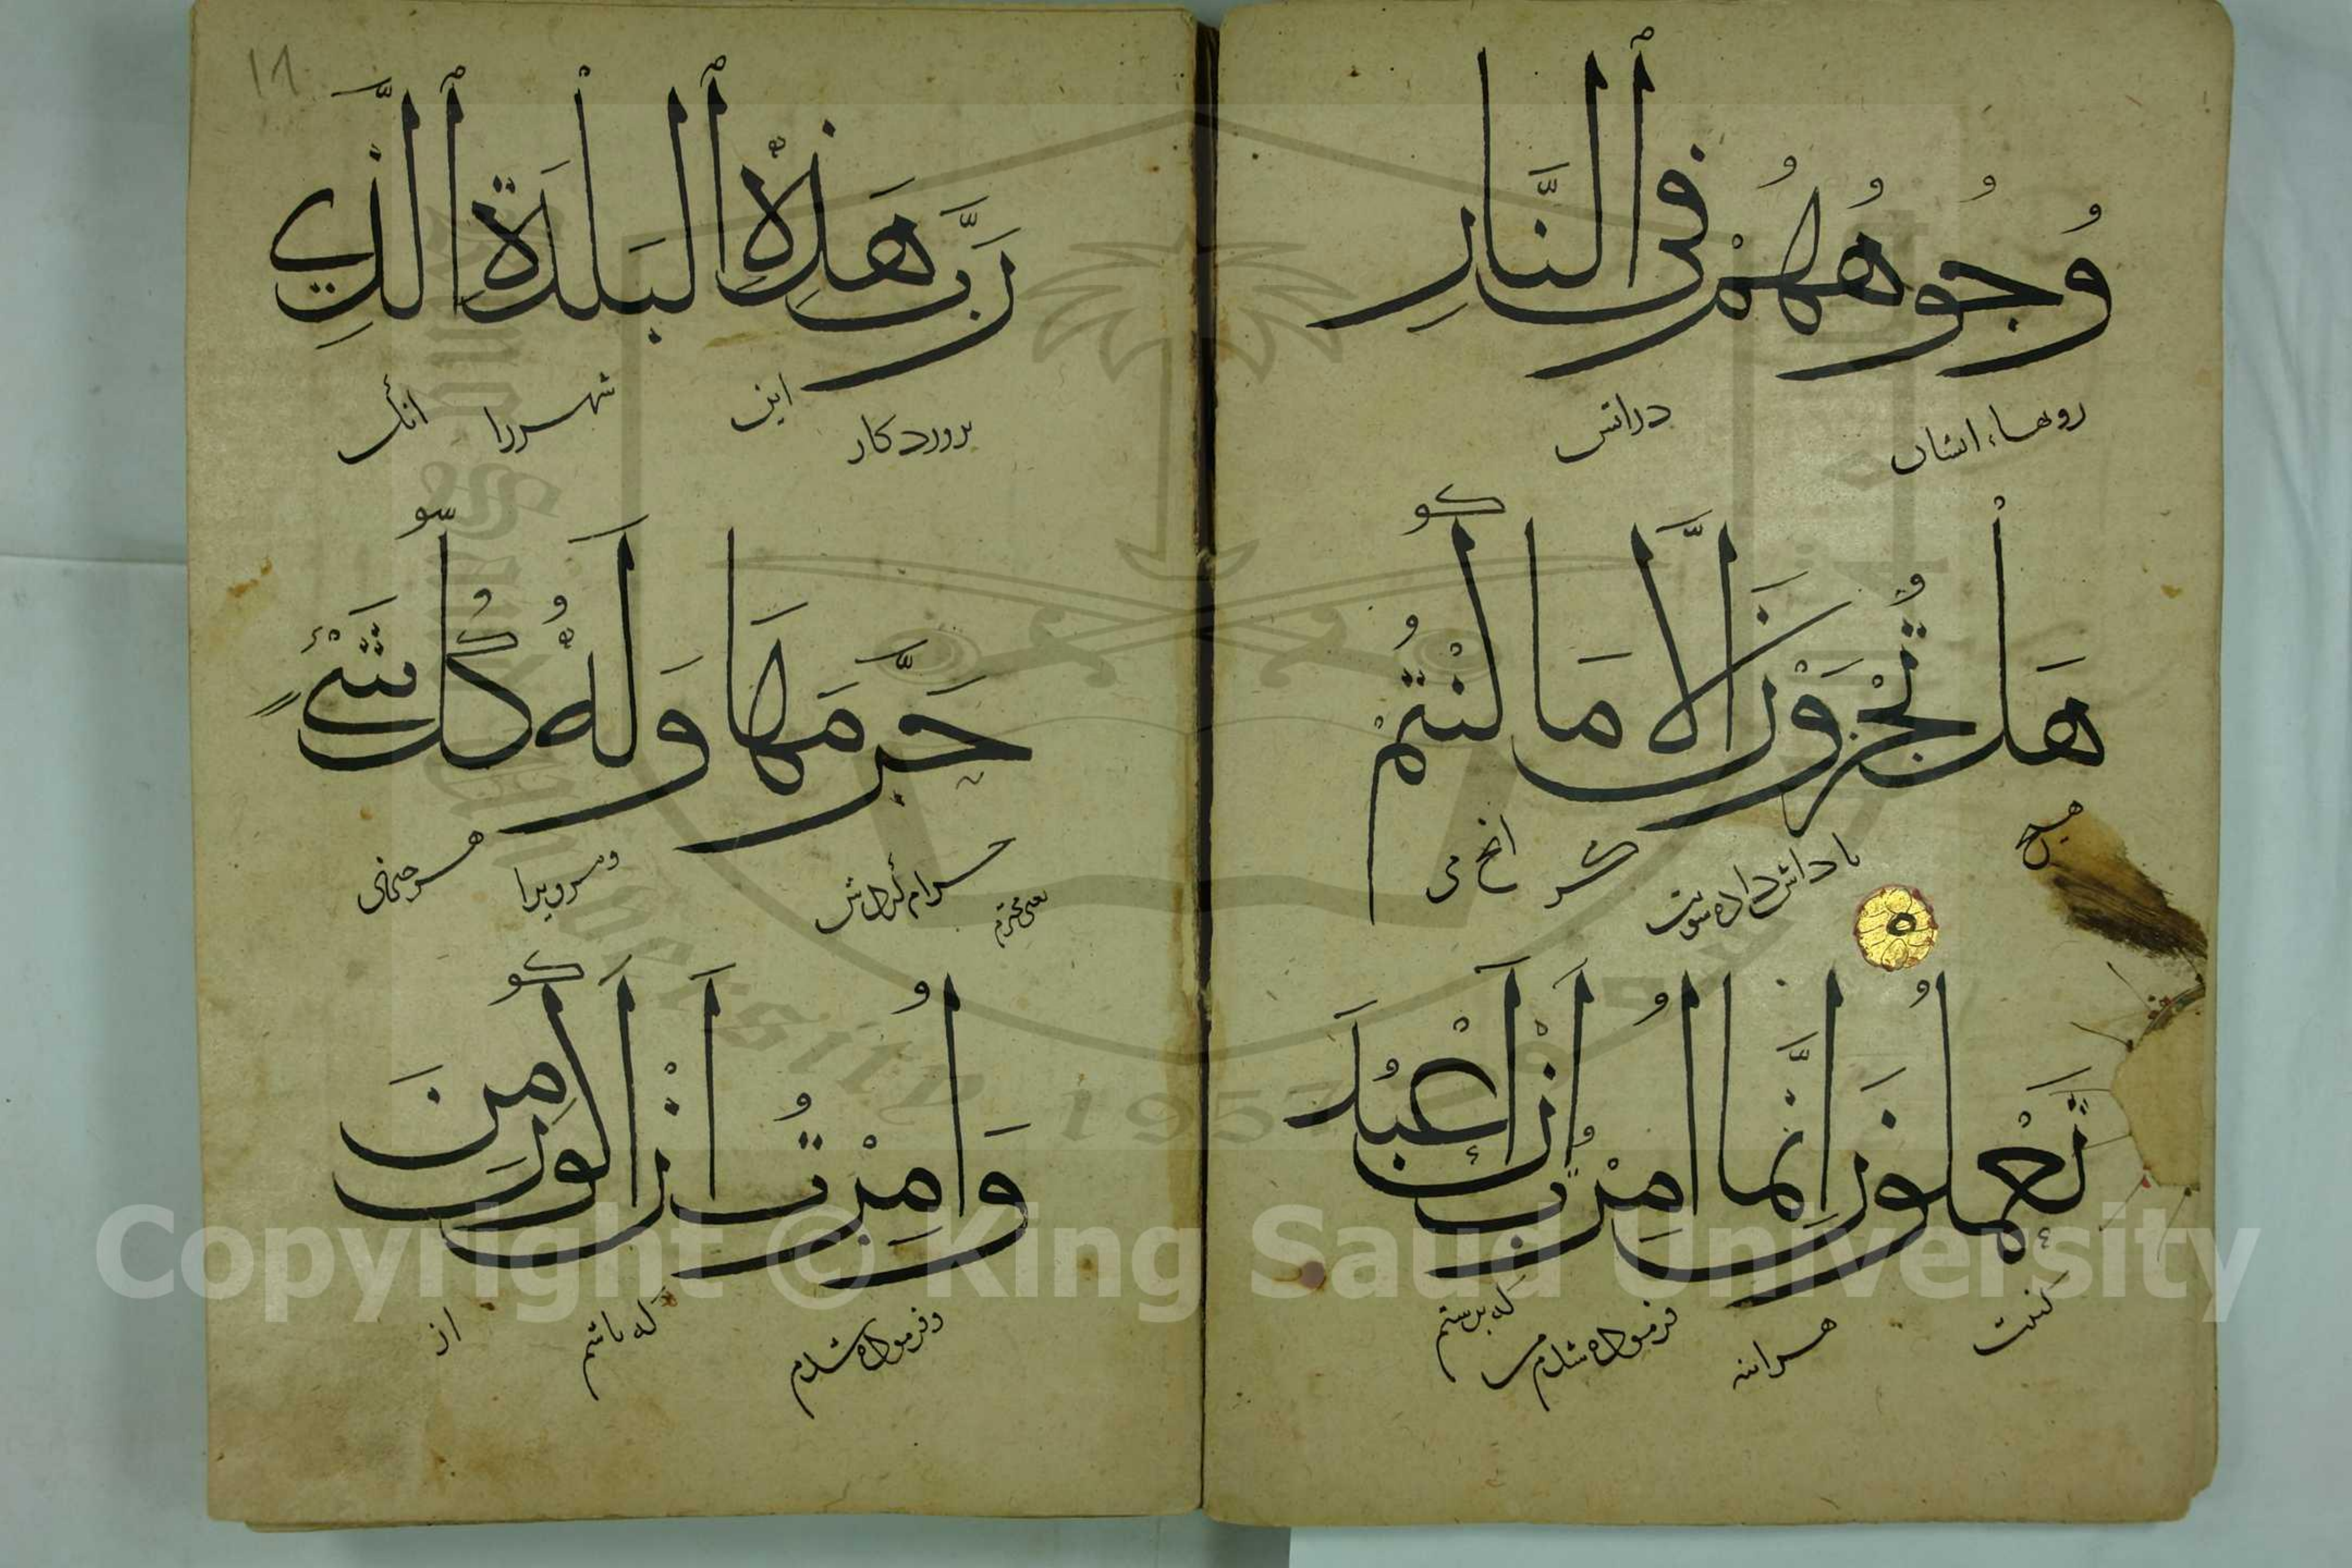 وُجُوهُهُمْ فِى ٱلنَّارِ
روهاء ایشان در اتش
هَلْ تُجْزَوْنَ اِلَّا مَا كُنْتُمْ
هیچ پاداش داده شویت مکر انچ می
تَعْمَلُونَ اِنَّمَا اُمِرْتُ اَنْ اَعْبُدَ
کنیت هراینه فرموده شدم من که پرستم
١٨
رَبَّ هَذِهِ ٱلْبَلْدَةِ ٱلَّذِي
پروردکار این شهر را انک
حَرَّمَهَا وَلَهُ كُلُّ شَىْءٍ
یعنی محترم حرام کردش ومرویرا هر چیزی
وَاُمِرْتُ اَنْ اَكُونَ مِنَ
وفرموده شدم که باشم از
Copyright © King Saud University
1957